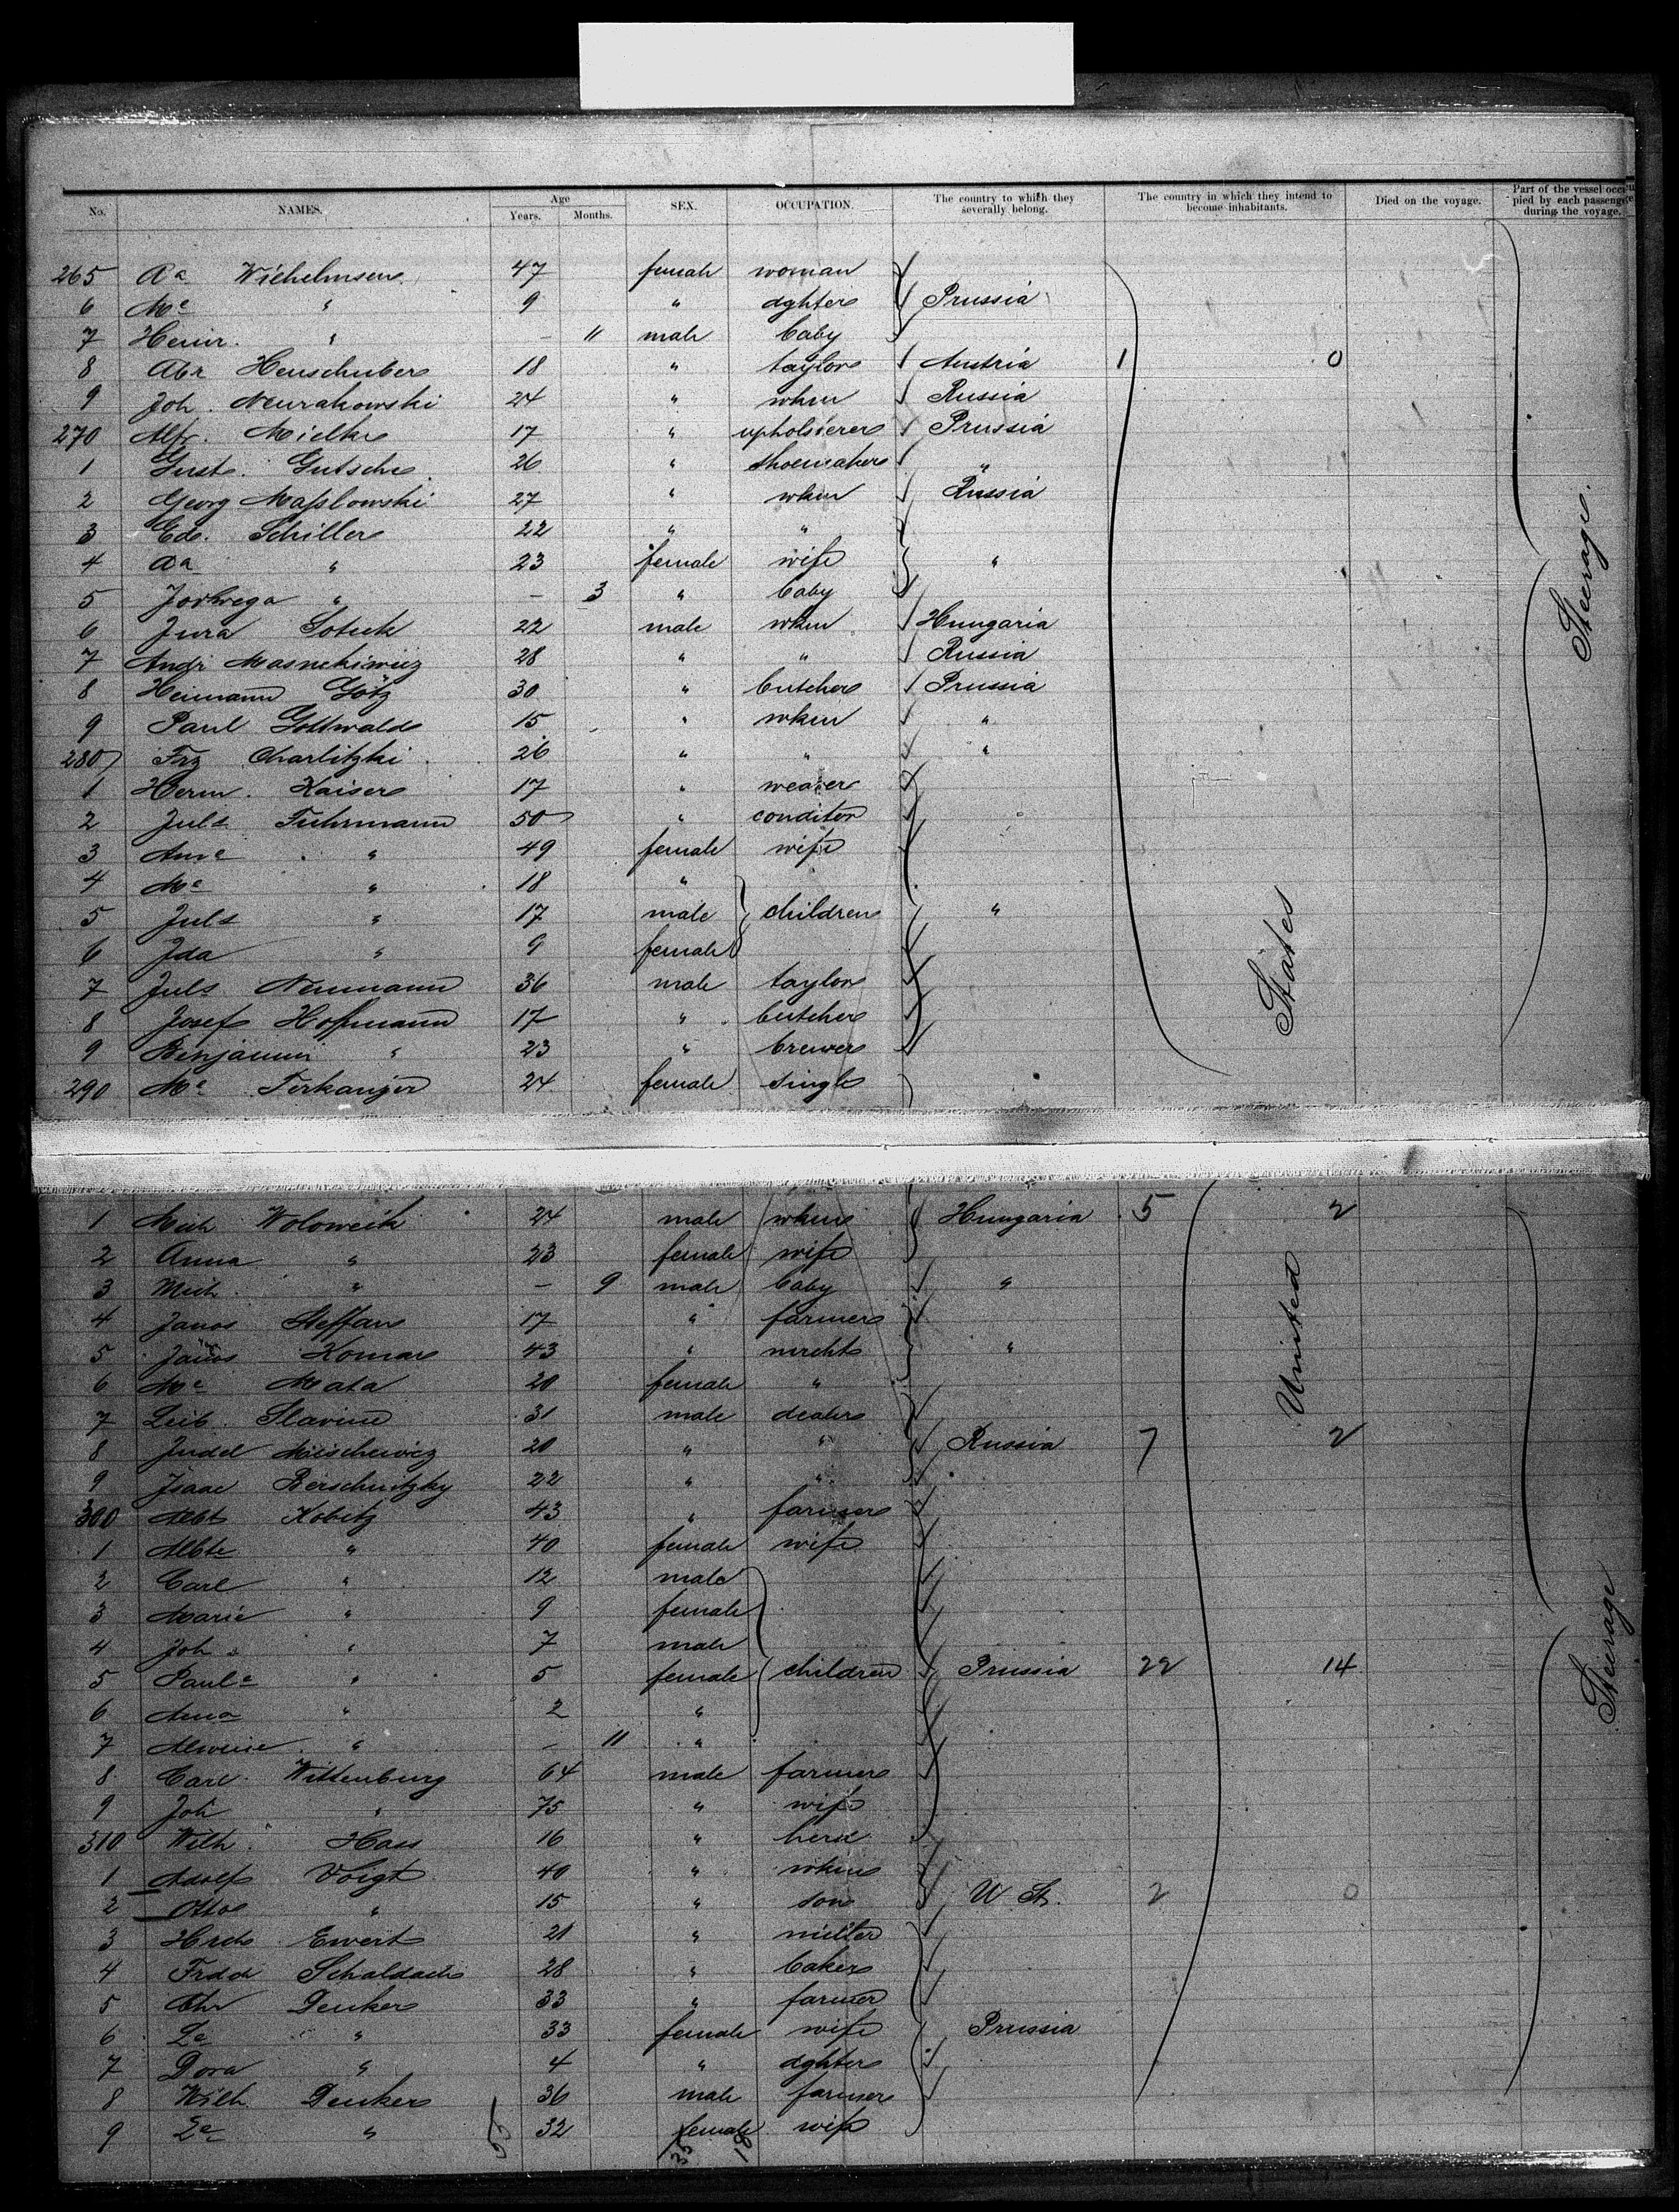 No. NAMES. Age Years. Months. SEX. OCCUPATION. The country to which they severally belong. The country in which they intend to become inhabitants. Died on the voyage. Part of the vessel occupied by each passenger during the voyage.
265 Aa Wichelmsen 47 female woman
6 Me " 9 " dghter Prussia
7 Heinr. " – 11 male baby
8 Abr Henschuber 18 " taylor Austria 1 0
9 Joh. Neurakowski 24 " wkm Russia
270 Alfr. Mielke 17 " upholsterer Prussia
1 Gust. Gutsche 26 " shoemaker "
2 Georg Maßlowski 27 " wkm Russia
3 Ed. Schiller 22 " "
4 Aa " 23 female wife "
5 " – 3 " baby
6 Jura Sotuk 22 male wkm Hungaria
7 Andr 28 " " Russia
8 Heimann Götz 30 " butcher Prussia
9 Paul Gottwald 15 " wkm "
280 Frz Charlitzki 26 " " "
1 Herm. Kaiser 17 " weaver
2 Juls Fuhrmann 50 " conditor
3 Anna " 49 female wife
4 Me " 18 "
5 Juls " 17 male children "
6 Ida " 9 female
7 Juls Neumann 36 male taylor
8 Josef Hoffmann 17 " butcher
9 Benjamin " 23 " brewer
290 Me Terkanjer 24 female single
States
Steerage.
1 Mich Woloweik 24 male wkm Hungaria 5 2
2 Anna " 23 female wife
3 Mich. " – 9 male baby "
4 Janos Steffan 17 " farmer
5 Janos Komar 43 " mercht "
6 Me Mata 20 female "
7 Leib. Slavine 31 male dealer
8 Judel Mischewicz 20 " " Russia 7 2
9 Isaac Berschnitzky 22 " "
300 Albt Kobitz 43 " farmer
1 Albte " 40 female wife
2 Carl " 12 male
3 Marie " 9 female
4 Joh " 7 male
5 Paule " 5 female children Prussia 22 14
6 Anna " 2 "
7 Alwine " – 11 "
8 Carl Wittenburg 64 male farmer
9 Joh " 75 " wife
310 Wilh. Hass 16 "
1 Adolf Voigt 40 " wkm
2 Otto " 15 " son U St. 2 0
3 Hrch Ewert 21 " miller
4 Frdch Schaldach 28 " baker
5 Chr Denker 33 " farmer
6 Le " 33 female wife Prussia
7 Dora " 4 " dghter
8 Wilh. Denker 36 male farmer
9 Le " 32 female wife
United
Steerage
55 35 18